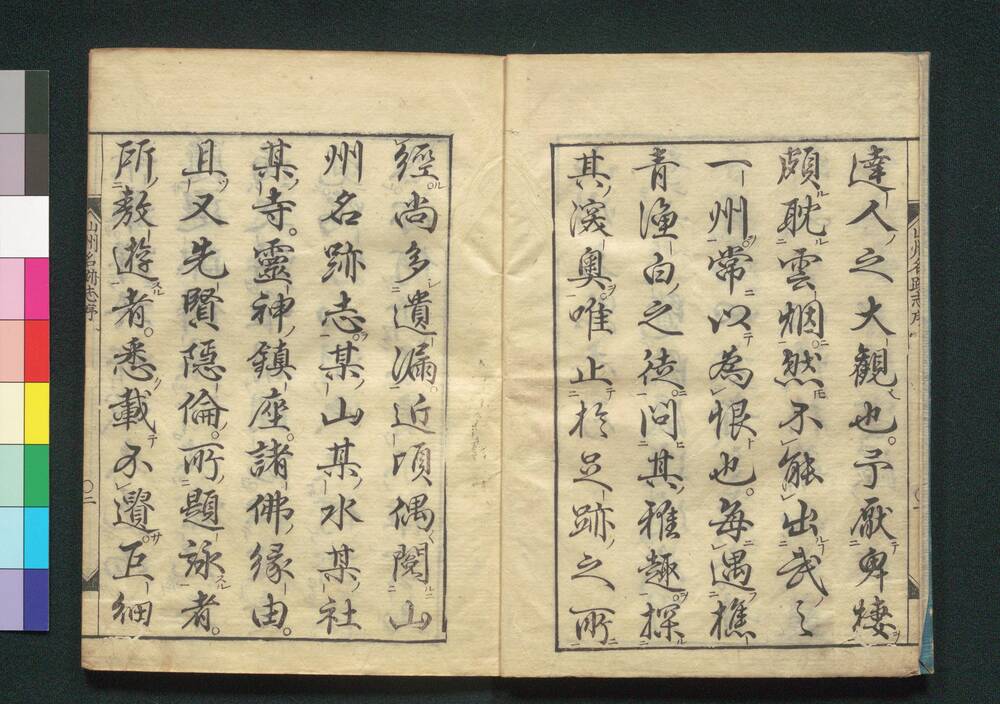 達人之大觀也。予厭卑棲
頗耽雲烟然不能出武之
一州常以為恨也。每遇樵
青漁白之徒問其雅趣探
其深奧唯止於足跡之所
經尚多遺漏。近頃偶閱山
州名跡志某山某水某社
某寺。靈神鎮座。諸佛緣由。
且又先賢隱倫。所題詠者。
所敖遊者。悉載不遺巨細
山州名跡志序
山州名跡志序
〇二